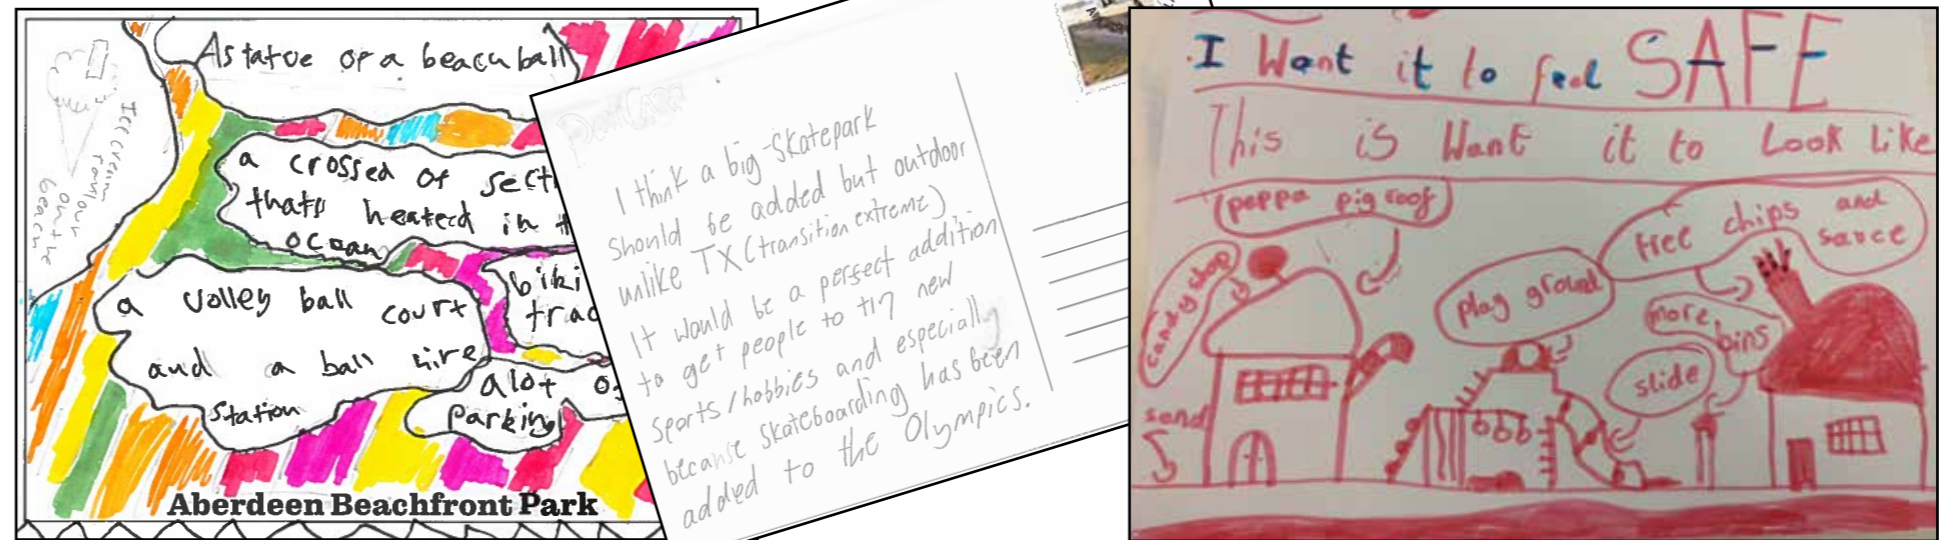 A statue of a beach ball
Icecream
parlour
on the
beach
a crossed of secti
thats heated in t
ocean
a volley ball court
and a ball hire
station
biki
trac
alot o
parking
Aberdeen Beachfront Park
Post Card
I think a big skatepark
should be added but outdoor
unlike TX (transition extreme)
It would be a perfect addition
to get people to try new
sports/hobbies and especially
because skateboarding has been
added to the Olympics.
I Want it to feel SAFE
This is Want it to Look Like
peppa pig roof
free chips and
sauce
candy shop
play ground
more
bins
slide
sand